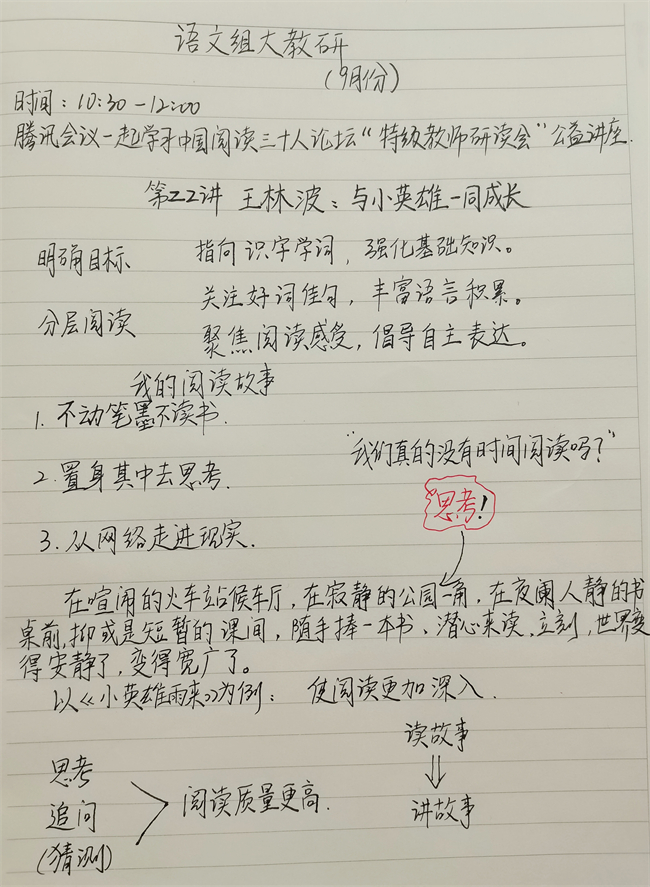 语文组大教研
(9月份)
时间：10:30-12:00
腾讯会议一起学习中国阅读三十人论坛“特级教师研读会”公益讲座.
第22讲 王林波：与小英雄一同成长
明确目标
指向识字学词，强化基础知识。
关注好词佳句，丰富语言积累。
分层阅读
聚焦阅读感受，倡导自主表达。
我的阅读故事
1. 不动笔墨不读书.
“我们真的没有时间阅读吗？”
2. 置身其中去思考.
思考！
3. 从网络走进现实.
在喧闹的火车站候车厅，在寂静的公园一角，在夜阑人静的书
桌前，抑或是短暂的课间，随手捧一本书、潜心来读，立刻，世界变
得安静了，变得宽广了。
以《小英雄雨来》为例： 使阅读更加深入.
读故事
思考
追问
(猜测)
阅读质量更高.
讲故事